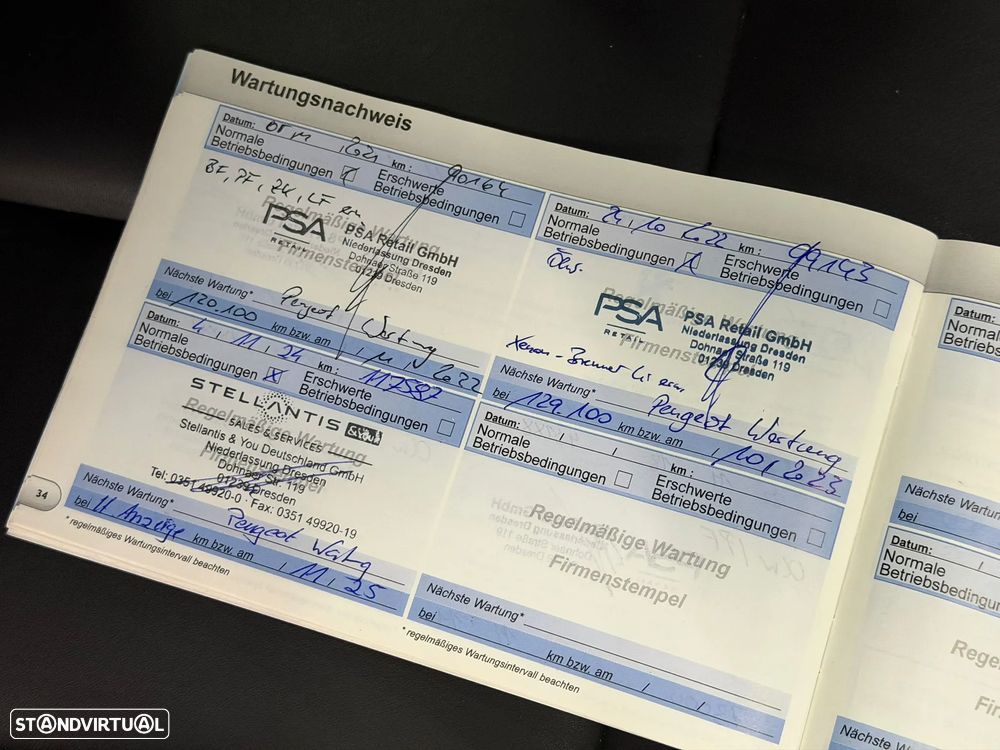 Wartungsnachweis
Datum: 2021 km: 90164
Normale
Betriebsbedingungen
Erschwerte
Betriebsbedingungen
BF, PF, ZK, LF ern
Regelmäßige Wartung
Firmenstempel
PSA
RETAIL
PSA Retail GmbH
Niederlassung Dresden
Dohnaer Straße 119
01239 Dresden
Nächste Wartung* Peugeot Wartung
bei 120.100 km bzw. am / 11 / 2022
Datum: 24, 10 2022 km: 99143
Normale
Betriebsbedingungen
Erschwerte
Betriebsbedingungen
Regelmäßige Wartung
Firmenstempel
PSA
RETAIL
PSA Retail GmbH
Niederlassung Dresden
Dohnaer Straße 119
01239 Dresden
Xenon-Brenner Li ern,
Nächste Wartung* Peugeot Wartung
bei 129.100 km bzw. am / 10 / 2023
Datum: 4, 11, 24 km: 117587
Normale
Betriebsbedingungen
Erschwerte
Betriebsbedingungen
Regelmäßige Wartung
Firmenstempel
STELLANTIS &YOU
SALES & SERVICES
Stellantis & You Deutschland GmbH
Niederlassung Dresden
Dohnaer Str. 119
01239 Dresden
Tel: 0351 49920-0 · Fax: 0351 49920-19
Nächste Wartung* Peugeot Wartung
bei lt Anzeige km bzw. am / 11 / 25
* regelmäßiges Wartungsintervall beachten
34
Datum: / / km:
Normale
Betriebsbedingungen
Erschwerte
Betriebsbedingungen
Regelmäßige Wartung
Firmenstempel
Nächste Wartung*
bei km bzw. am / /
* regelmäßiges Wartungsintervall beachten
Datum:
Normale
Betriebsbed
Nächste Wartung
bei
Datum:
Normale
Betriebsbedingu
Rege
Fir
Nächste Wartung
STANDVIRTUAL